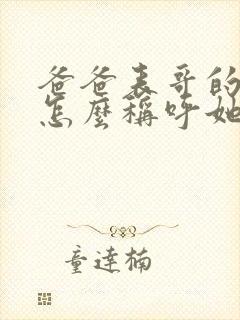 爸爸表哥的
怎麼稱呼她
童達楠